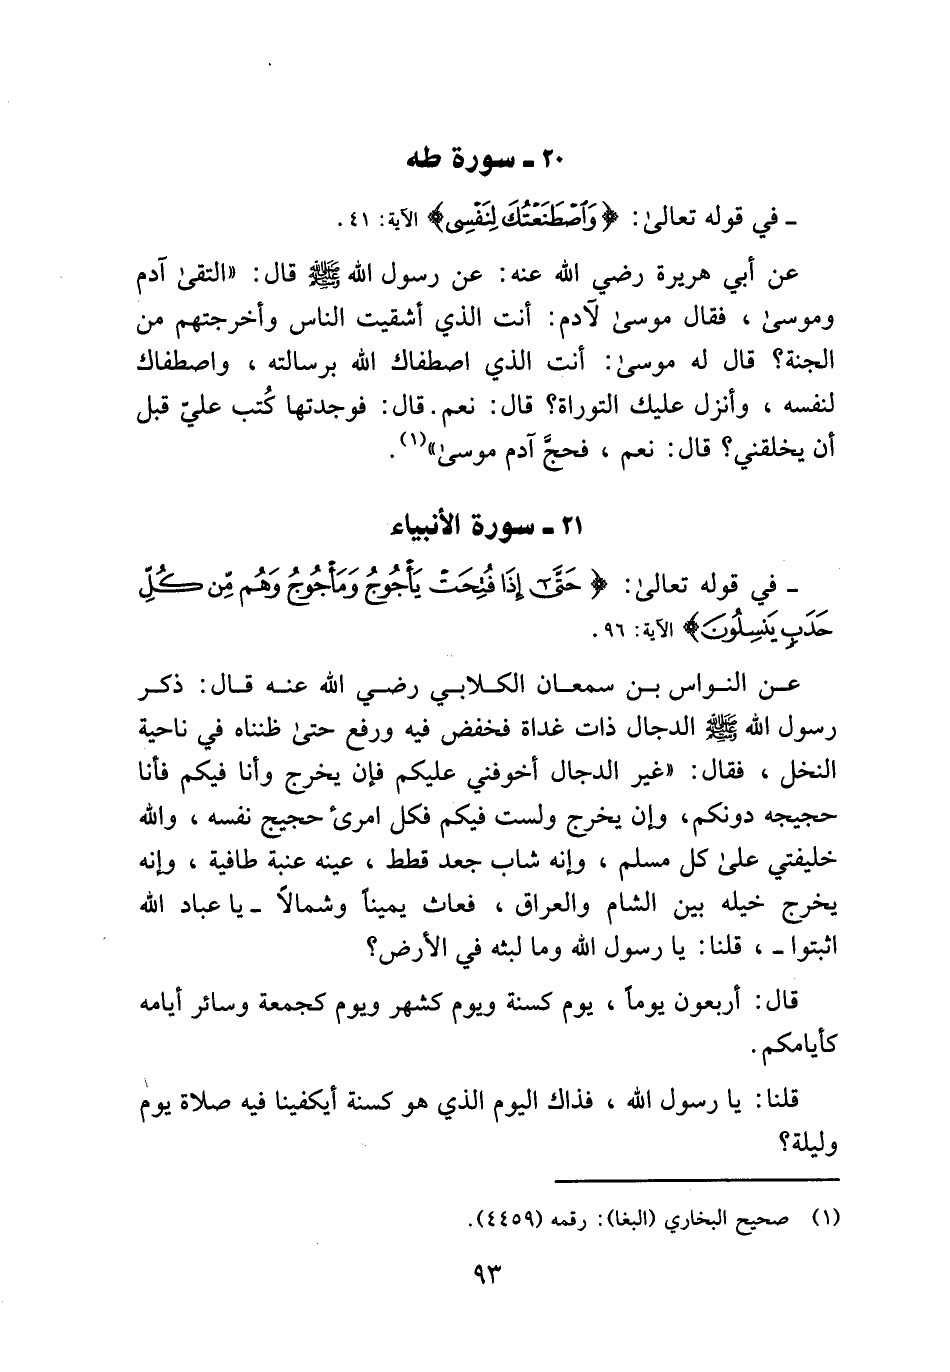 ٢٠ ـ سورة طه
ـ في قوله تعالىٰ: ﴿وَٱصْطَنَعْتُكَ لِنَفْسِى﴾ الآية: ٤١.
عن أبي هريرة رضي الله عنه: عن رسول الله ﷺ قال: «التقىٰ آدم
وموسىٰ ، فقال موسىٰ لآدم: أنت الذي أشقيت الناس وأخرجتهم من
الجنة؟ قال له موسىٰ: أنت الذي اصطفاك الله برسالته ، واصطفاك
لنفسه ، وأنزل عليك التوراة؟ قال: نعم. قال: فوجدتها كُتب عليّ قبل
أن يخلقني؟ قال: نعم ، فحجَّ آدم موسىٰ»(١).
٢١ ـ سورة الأنبياء
ـ في قوله تعالىٰ: ﴿حَتَّىٰٓ إِذَا فُتِحَتْ يَأْجُوجُ وَمَأْجُوجُ وَهُم مِّن كُلِّ
حَدَبٍ يَنسِلُونَ﴾ الآية: ٩٦.
عن النواس بن سمعان الكلابي رضي الله عنه قال: ذكر
رسول الله ﷺ الدجال ذات غداة فخفض فيه ورفع حتىٰ ظنناه في ناحية
النخل ، فقال: «غير الدجال أخوفني عليكم فإن يخرج وأنا فيكم فأنا
حجيجه دونكم، وإن يخرج ولست فيكم فكل امرئ حجيج نفسه ، والله
خليفتي علىٰ كل مسلم ، وإنه شاب جعد قطط ، عينه عنبة طافية ، وإنه
يخرج خيله بين الشام والعراق ، فعاث يميناً وشمالاً ـ يا عباد الله
اثبتوا ـ ، قلنا: يا رسول الله وما لبثه في الأرض؟
قال: أربعون يوماً ، يوم كسنة ويوم كشهر ويوم كجمعة وسائر أيامه
كأيامكم.
قلنا: يا رسول الله ، فذاك اليوم الذي هو كسنة أيكفينا فيه صلاة يوم
وليلة؟
(١) صحيح البخاري (البغا): رقمه (٤٤٥٩).
٩٣